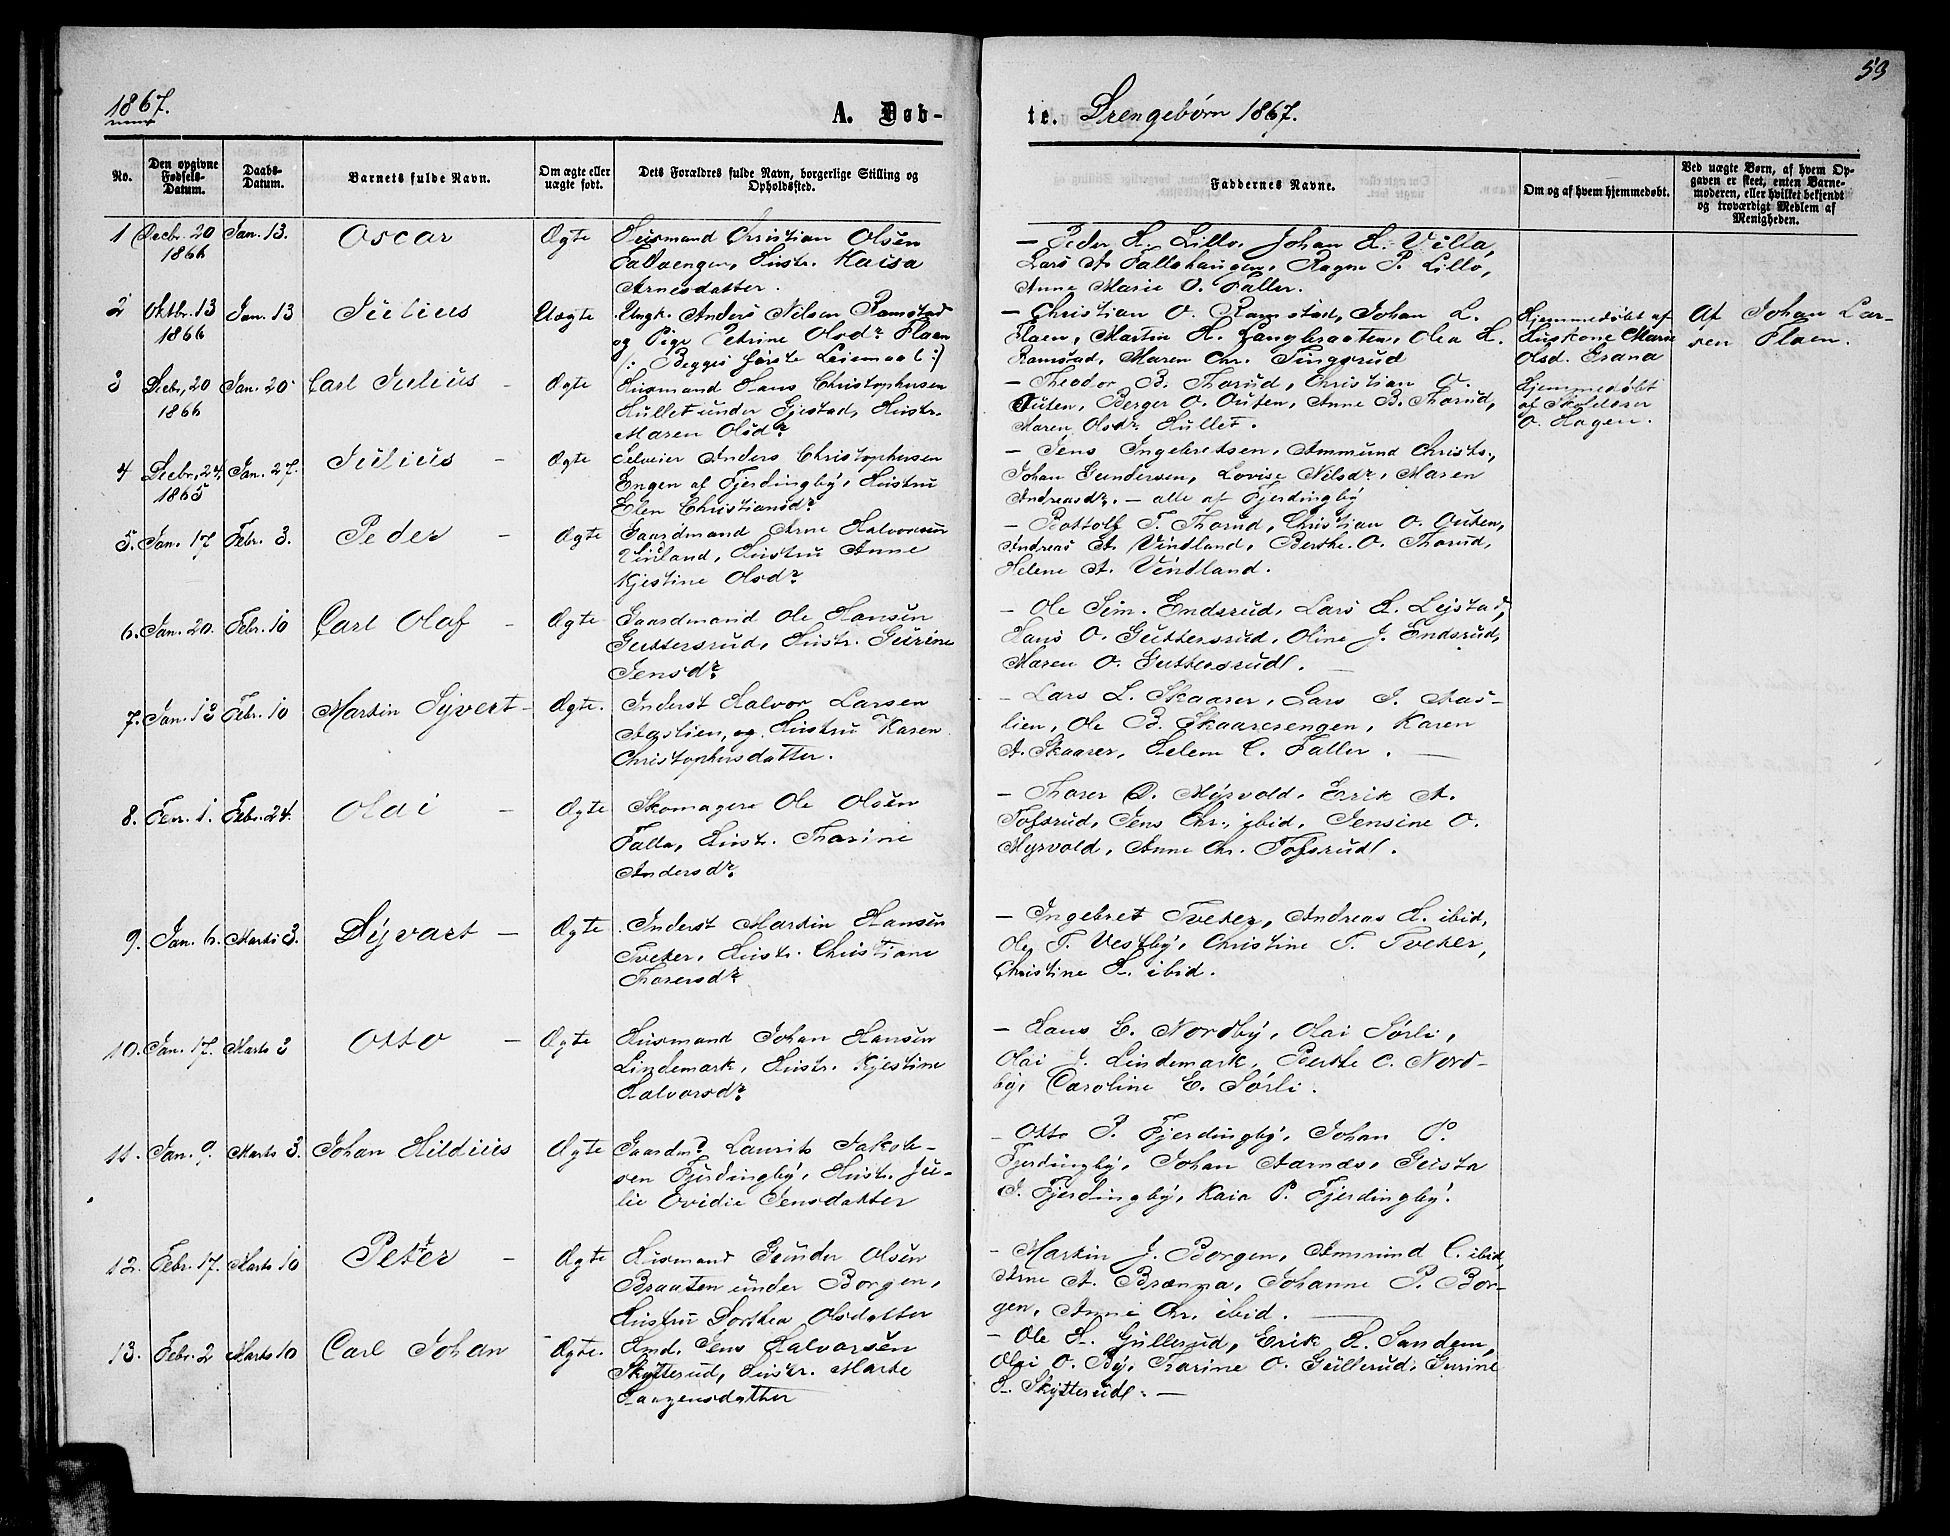 53
1867.
A. Døb-
te. Drengebørn 1867.
No.
Den opgivne Fødsels-Datum.
Daabs-Datum.
Barnets fulde Navn.
Om ægte eller uægte født.
Dets Forældres fulde Navn, borgerlige Stilling og Opholdssted.
Faddernes Navne.
Om og af hvem hjemmedøbt.
Ved uægte Børn, af hvem Opgaven er skeet, enten Barnemoderen, eller hvilket bekjendt og troværdigt Medlem af Menigheden.
1 Decbr. 20 1866 Jan. 13. Oscar Ægte
Husmand Christian Olsen
Fallaengen, Hustr. Kaisa
Arnesdatter.
– Peder H. Lillo, Johan H. Villa,
Lars A. Fallshaugen, Ragne P. Lillo,
Anne Marie O. Faller.
2 Oktbr. 13 1866 Jan. 13 Julius Uægte
Ungk. Anders Nilsen Ramstad
og Pige Petrine Olsdr Flaen
(: Begges første Leiemaal :)
– Christian O. Ramstad, Johan L.
Flaen, Martin H. Langbraaten, Olea H.
Ramstad, Maren Chr. Tingsrud
Hjemmedøbt af
Huskone Marie
Olsd. Grana
Af Johan Lar-
sen Flaen.
3 Decbr. 20 1866 Jan. 20 Carl Julius – Ægte
Husmand Hans Christophersen
Hullet under Gjestad, Hustr.
Maren Olsdr
– Theodor B. Thorud, Christian O.
Outen, Berger O. Outen, Anne B. Thorud,
Maren Olsdr Hullet.
Hjemmedøbt
af Skolelærer
O. Hagen.
4 Decbr. 24 1865 Jan. 27. Julius – Ægte
Selveier Anders Christophersen
Engen af Fjerdingby, Hustru
Elen Christiansdr
– Jens Ingebretsen, Ammund Christs.,
Johan Gundersen, Lovise Nilsdr, Maren
Andreasdr. – alle af Fjerdingby
5. Jan. 17 Febr. 3. Peder – Ægte
Gaardmand Arne Halvorsen
Vinland, Hustru Anne
Kjestine Olsdr
– Rottolf T. Thorud, Christian O. Outen,
Andreas A. Vindland, Berthe O. Thorud,
Helene A. Vindland.
6. Jan. 20. Febr. 10 Carl Olaf – Ægte
Gaardmand Ole Hansen
Guttersrud, Hustr. Gurine
Jensdr
– Ole Sim. Endsrud, Lars H. Lejstad,
Hans O. Guttersrud, Oline J. Endsrud,
Maren O. Guttersrud. –
7. Jan. 13 Febr. 10 Martin Syvert – Ægte.
Inderst Halvor Larsen
Aaslien, og Hustru Karen
Christophersdatter.
– Lars L. Skaarer, Lars J. Aas-
lien, Ole B. Skaaresengen, Karen
A. Skaarer, Helene C. Faller. –
8. Febr. 1. Febr. 24. Olai – Ægte
Skomagere Ole Olsen
Falla, Hustr. Thorine
Andersdr.
– Thorer O. Myrvold, Erik A.
Tofsrud, Jens Chr. ibid, Jensine O.
Myrvold, Anne Chr. Tofsrud.
9. Jan. 6. Marts 3. Syvart – Ægte
Inderst Martin Hansen
Tveter, Hustr. Christiane
Thorersdr
– Ingebret Tveter, Andreas H. ibid,
Ole T. Vestby, Christine T. Tveter,
Christine H. ibid.
10. Jan. 17. Marts 3 Otto – Ægte
Husmand Johan Hansen
Lindemark, Hustr. Kjestine
Halvorsdr
– Hans E. Nordby, Olai Sørli,
Olai J. Lindemark, Berthe C. Nord-
by, Caroline E. Sørli.
11. Jan. 9. Marts 3. Johan Hildius Ægte
Gaardm. Laurits Jakob-
sen Fjerdingby, Hustr. Ju-
lie Ovidie Jensdatter
– Otto P. Fjerdingby, Johan P.
Fjerdingby, Johan Aarnæs, Gusta
J. Fjerdingby, Kaia P. Fjerdingby.
12. Febr. 17. Marts 10 Peter – Ægte
Husmand Gunder Olsen
Braaten under Borgen,
Hustru Dorthea Olsdatter
– Martin J. Borgen, Ammund C. ibid,
Arne A. Brænna, Johanne P. Bor-
gen, Anne Chr. ibid. –
13. Febr. 2 Marts 10 Carl Johan – Ægte.
Hmd. Jens Halvorsen
Skytterud, Hustr. Marte
Haagensdatter
– Ole H. Gullerud, Erik H. Sandem,
Olai O. By, Karine O. Gullerud, Gurine
H. Skytterud. –